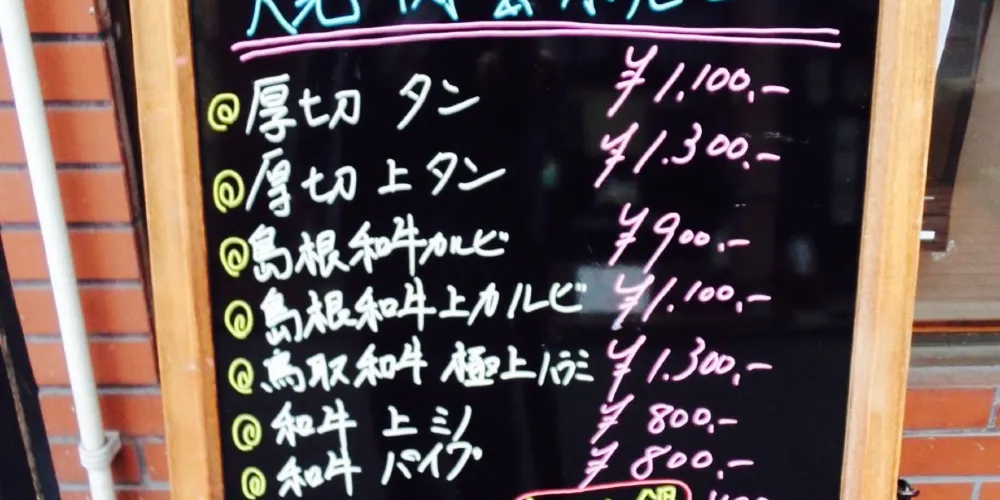 @ 厚切 タン ¥1.100.-
@ 厚切 上タン ¥1.300.-
@ 島根和牛カルビ ¥900.-
@ 島根和牛上カルビ ¥1.100.-
@ 鳥取和牛 極上ハラミ ¥1.300.-
@ 和牛 上ミノ ¥800.-
@ 和牛 パイプ ¥800.-